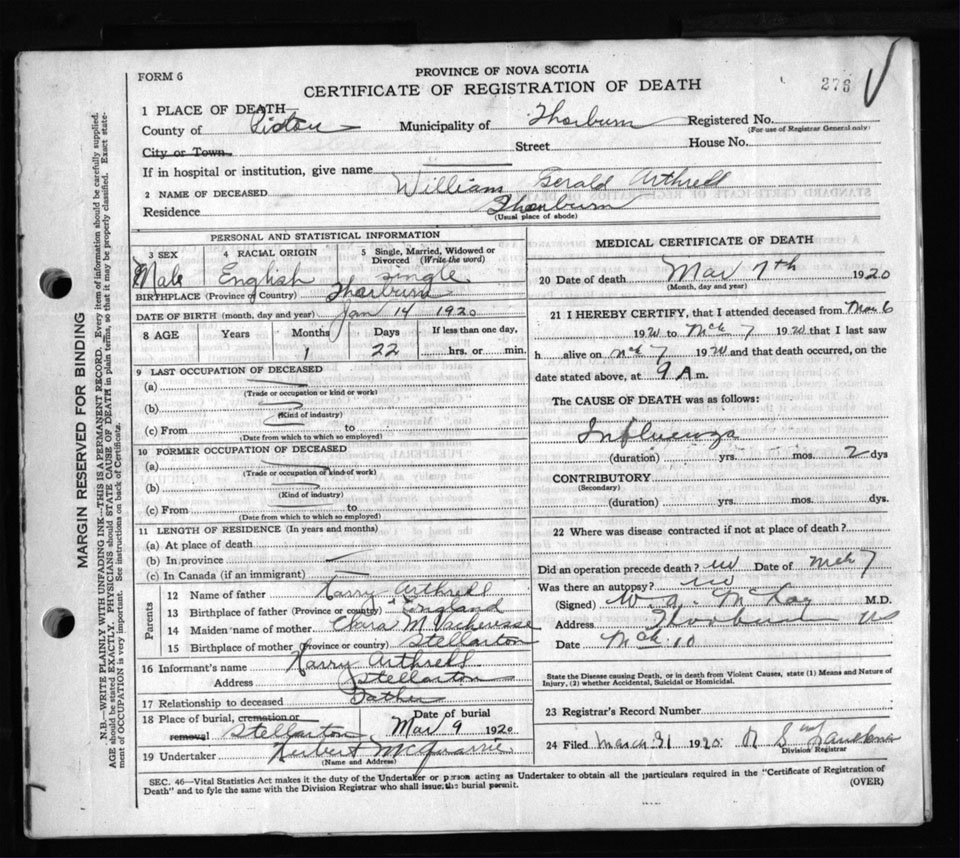 FORM 6
PROVINCE OF NOVA SCOTIA
CERTIFICATE OF REGISTRATION OF DEATH
276
1 PLACE OF DEATH—
County of Pictou Municipality of Thorburn Registered No.
(For use of Registrar General only)
City or Town Street House No.
If in hospital or institution, give name
2 NAME OF DECEASED William Gerald Arthrell
Residence Thorburn
(Usual place of abode)
PERSONAL AND STATISTICAL INFORMATION
3 SEX 4 RACIAL ORIGIN 5 Single, Married, Widowed or Divorced (Write the word)
Male English single
BIRTHPLACE (Province or Country) Thorburn
DATE OF BIRTH (month, day and year) Jan 14 1920
8 AGE Years Months Days If less than one day,
1 22 hrs. or min.
9 LAST OCCUPATION OF DECEASED
(a)
(Trade or occupation or kind of work)
(b)
(Kind of industry)
(c) From to
(Date from which to which so employed)
10 FORMER OCCUPATION OF DECEASED
(a)
(Trade or occupation or kind of work)
(b)
(Kind of industry)
(c) From to
(Date from which to which so employed)
11 LENGTH OF RESIDENCE (In years and months)
(a) At place of death
(b) In province
(c) In Canada (if an immigrant)
Parents
12 Name of father Harry Arthrell
13 Birthplace of father (Province or country) England
14 Maiden name of mother Clara M
15 Birthplace of mother (Province or country) Stellarton
16 Informant's name Harry Arthrell
Address Stellarton
17 Relationship to deceased Father
18 Place of burial, cremation or removal Stellarton Date of burial Mar 9 1920
19 Undertaker Herbert
(Name and Address)
MEDICAL CERTIFICATE OF DEATH
20 Date of death Mar 7th 1920
(Month, day and year)
21 I HEREBY CERTIFY, that I attended deceased from Mar 6
1920 to Mch 7 1920 that I last saw
h alive on Mch 7 1920 and that death occurred, on the
date stated above, at 9 A m.
The CAUSE OF DEATH was as follows:
Influenza
(duration) yrs. mos. 2 dys
CONTRIBUTORY
(Secondary)
(duration) yrs. mos. dys.
22 Where was disease contracted if not at place of death?
Did an operation precede death? no Date of Mch 7
Was there an autopsy? no
(Signed) M.D.
Address Thorburn NS
Date Mch 10
State the Disease causing Death, or in death from Violent Causes, state (1) Means and Nature of
Injury, (2) whether Accidental, Suicidal or Homicidal.
23 Registrar's Record Number
24 Filed March 31 1920
Division Registrar
SEC. 46—Vital Statistics Act makes it the duty of the Undertaker or person acting as Undertaker to obtain all the particulars required in the "Certificate of Registration of
Death" and to fyle the same with the Division Registrar who shall issue the burial permit.
(OVER)
MARGIN RESERVED FOR BINDING
N.B.—WRITE PLAINLY WITH UNFADING INK—THIS IS A PERMANENT RECORD. Every item of information should be carefully supplied.
AGE should be stated EXACTLY. PHYSICIANS should STATE CAUSE OF DEATH in plain terms, so that it may be properly classified. Exact state-
ment of OCCUPATION is very important. See instructions on back of Certificate.